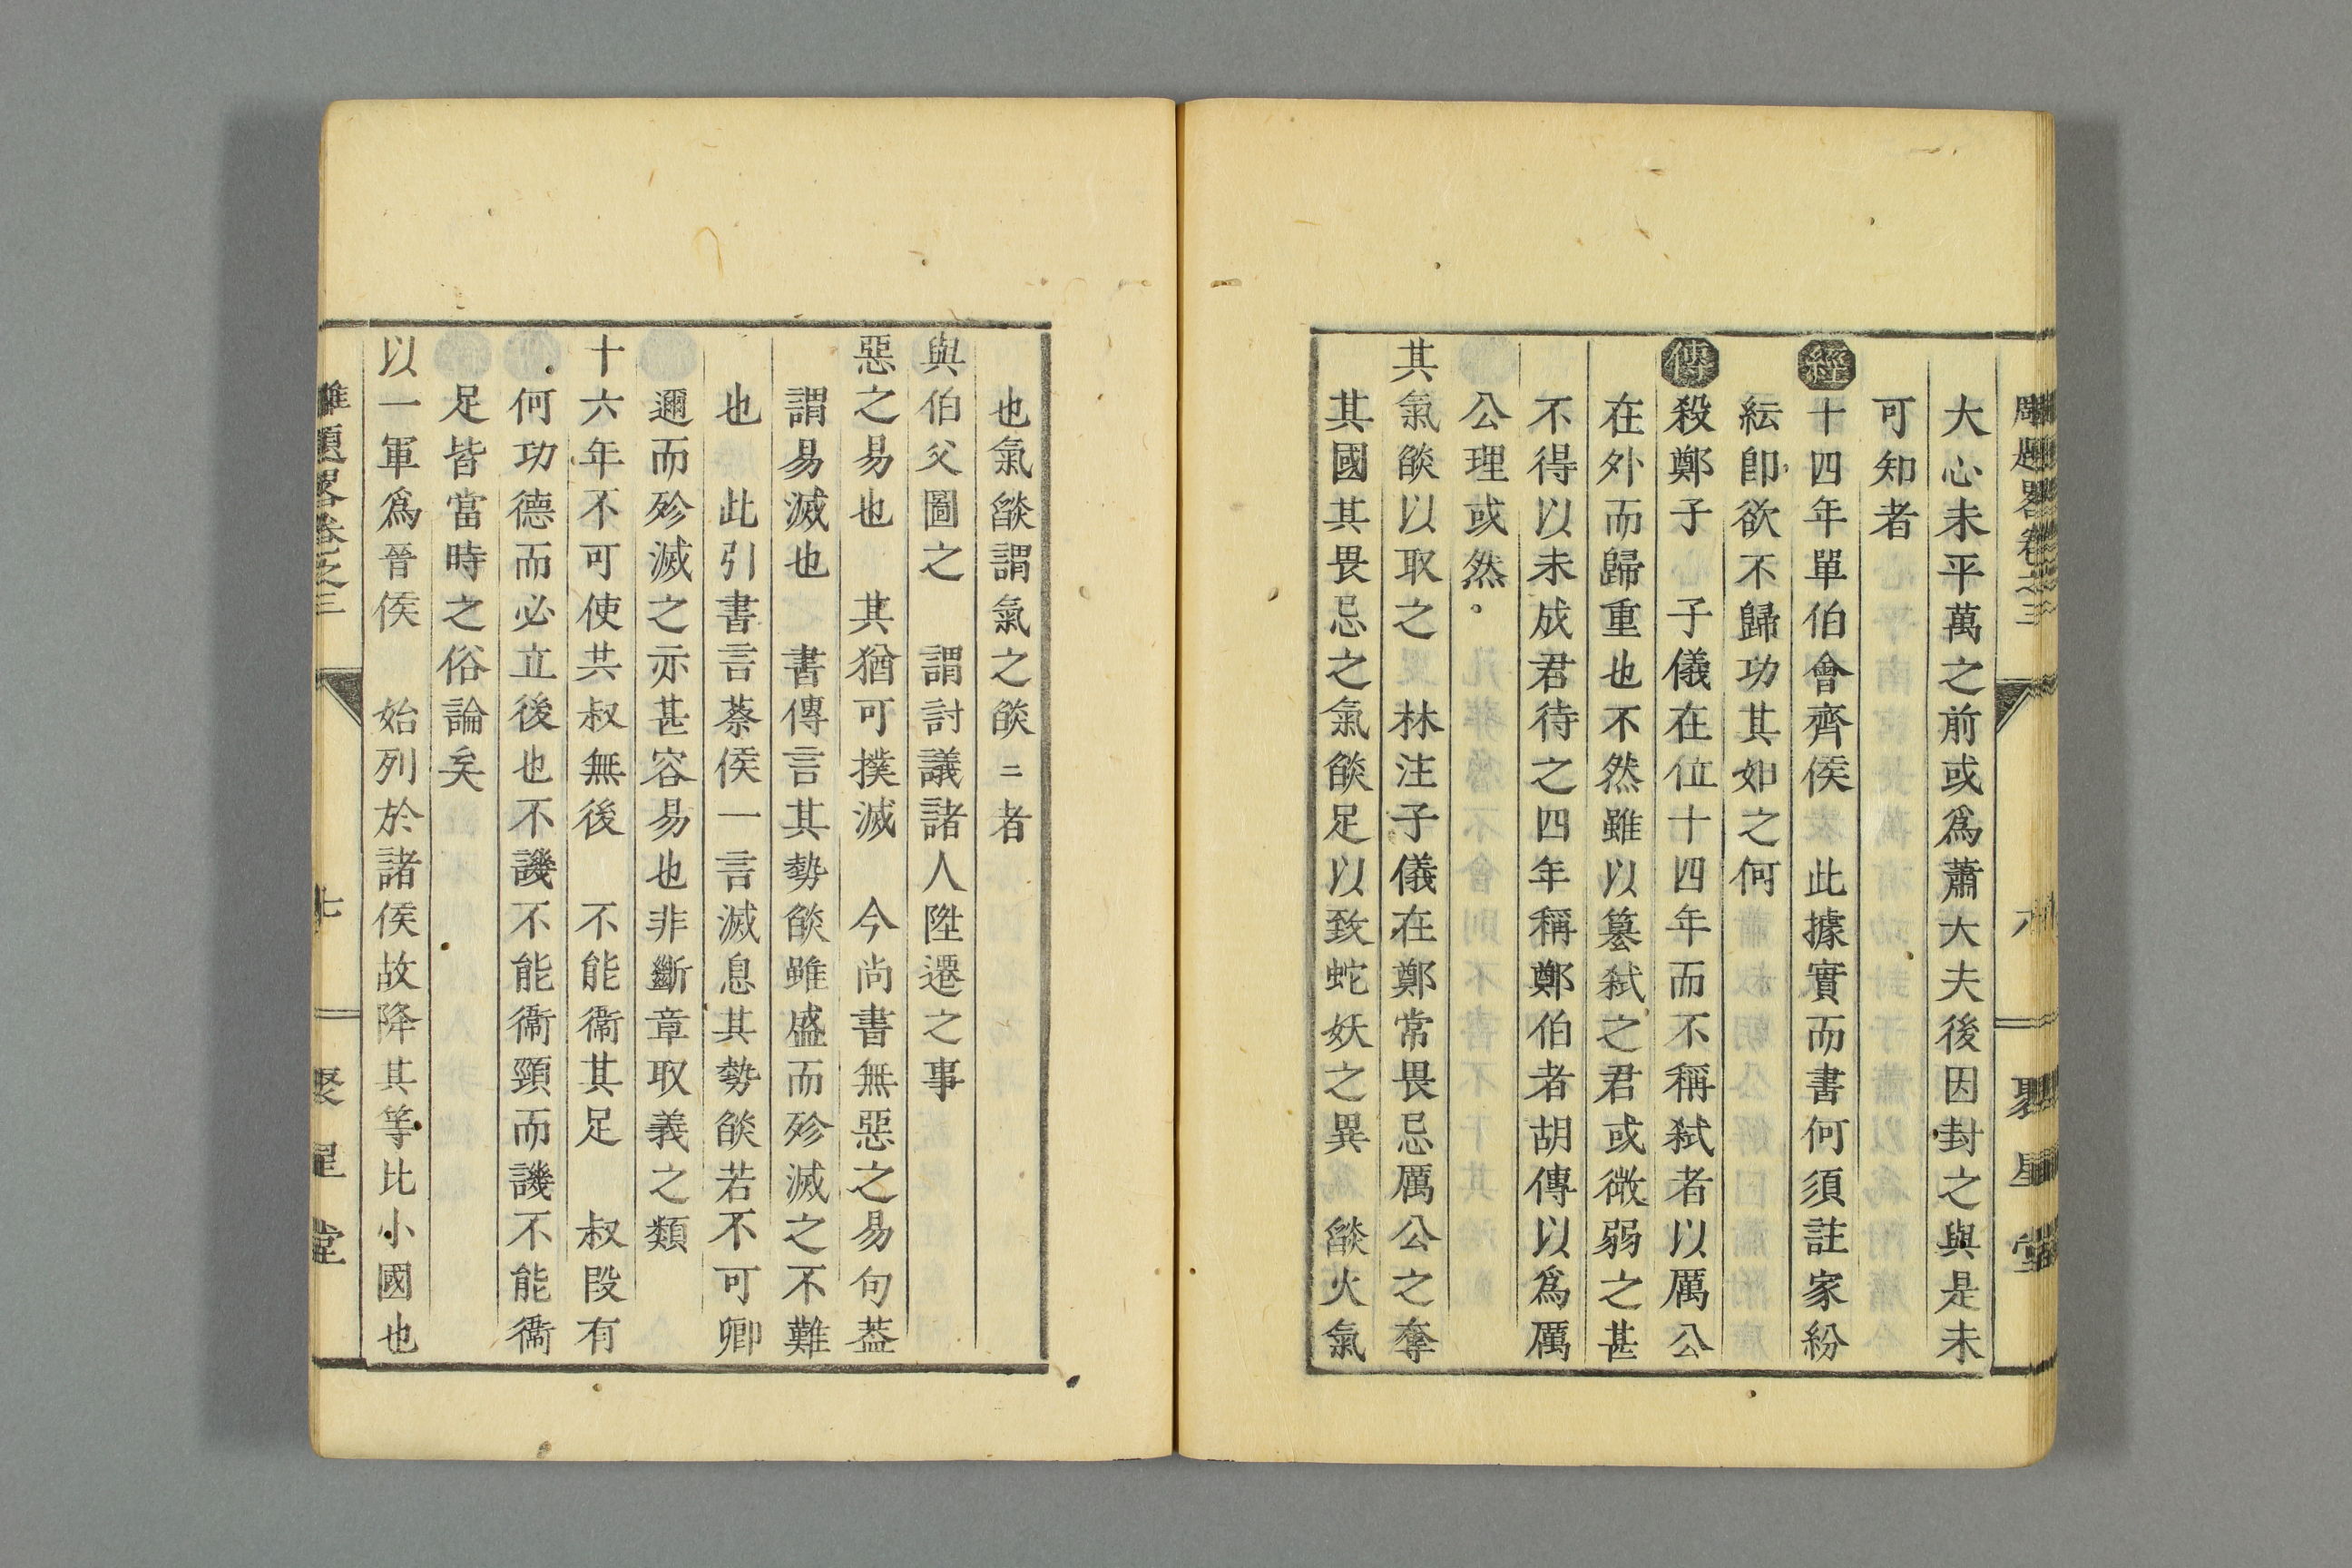 大心未平萬之前或爲蕭大夫後因封之與是未
可知者
經十四年單伯會齊侯　此據實而書何須註家紛
紜卽欲不歸功其如之何
傳殺鄭子　子儀在位十四年而不稱弑者以厲公
在外而歸重也不然雖以篡弑之君或微弱之甚
不得以未成君待之四年稱鄭伯者胡傳以爲厲
公理或然。
其氣燄以取之　林注子儀在鄭常畏忌厲公之奪
其國其畏忌之氣燄足以致蛇妖之異　燄火氣
也氣燄謂氣之燄二者
與伯父圖之　謂討議諸人陞遷之事
惡之易也　其猶可撲滅　今尚書無惡之易句葢
謂易滅也　書傳言其勢燄雖盛而殄滅之不難
也　此引書言蔡侯一言滅息其勢燄若不可卿
邇而殄滅之亦甚容易也非斷章取義之類
十六年不可使共叔無後　不能衞其足　叔段有
何功德而必立後也不譏不能衞頸而譏不能衞
足皆當時之俗論矣
以一軍爲晉侯　始列於諸侯故降其等比小國也
雜題畧卷之三　七　聚星堂